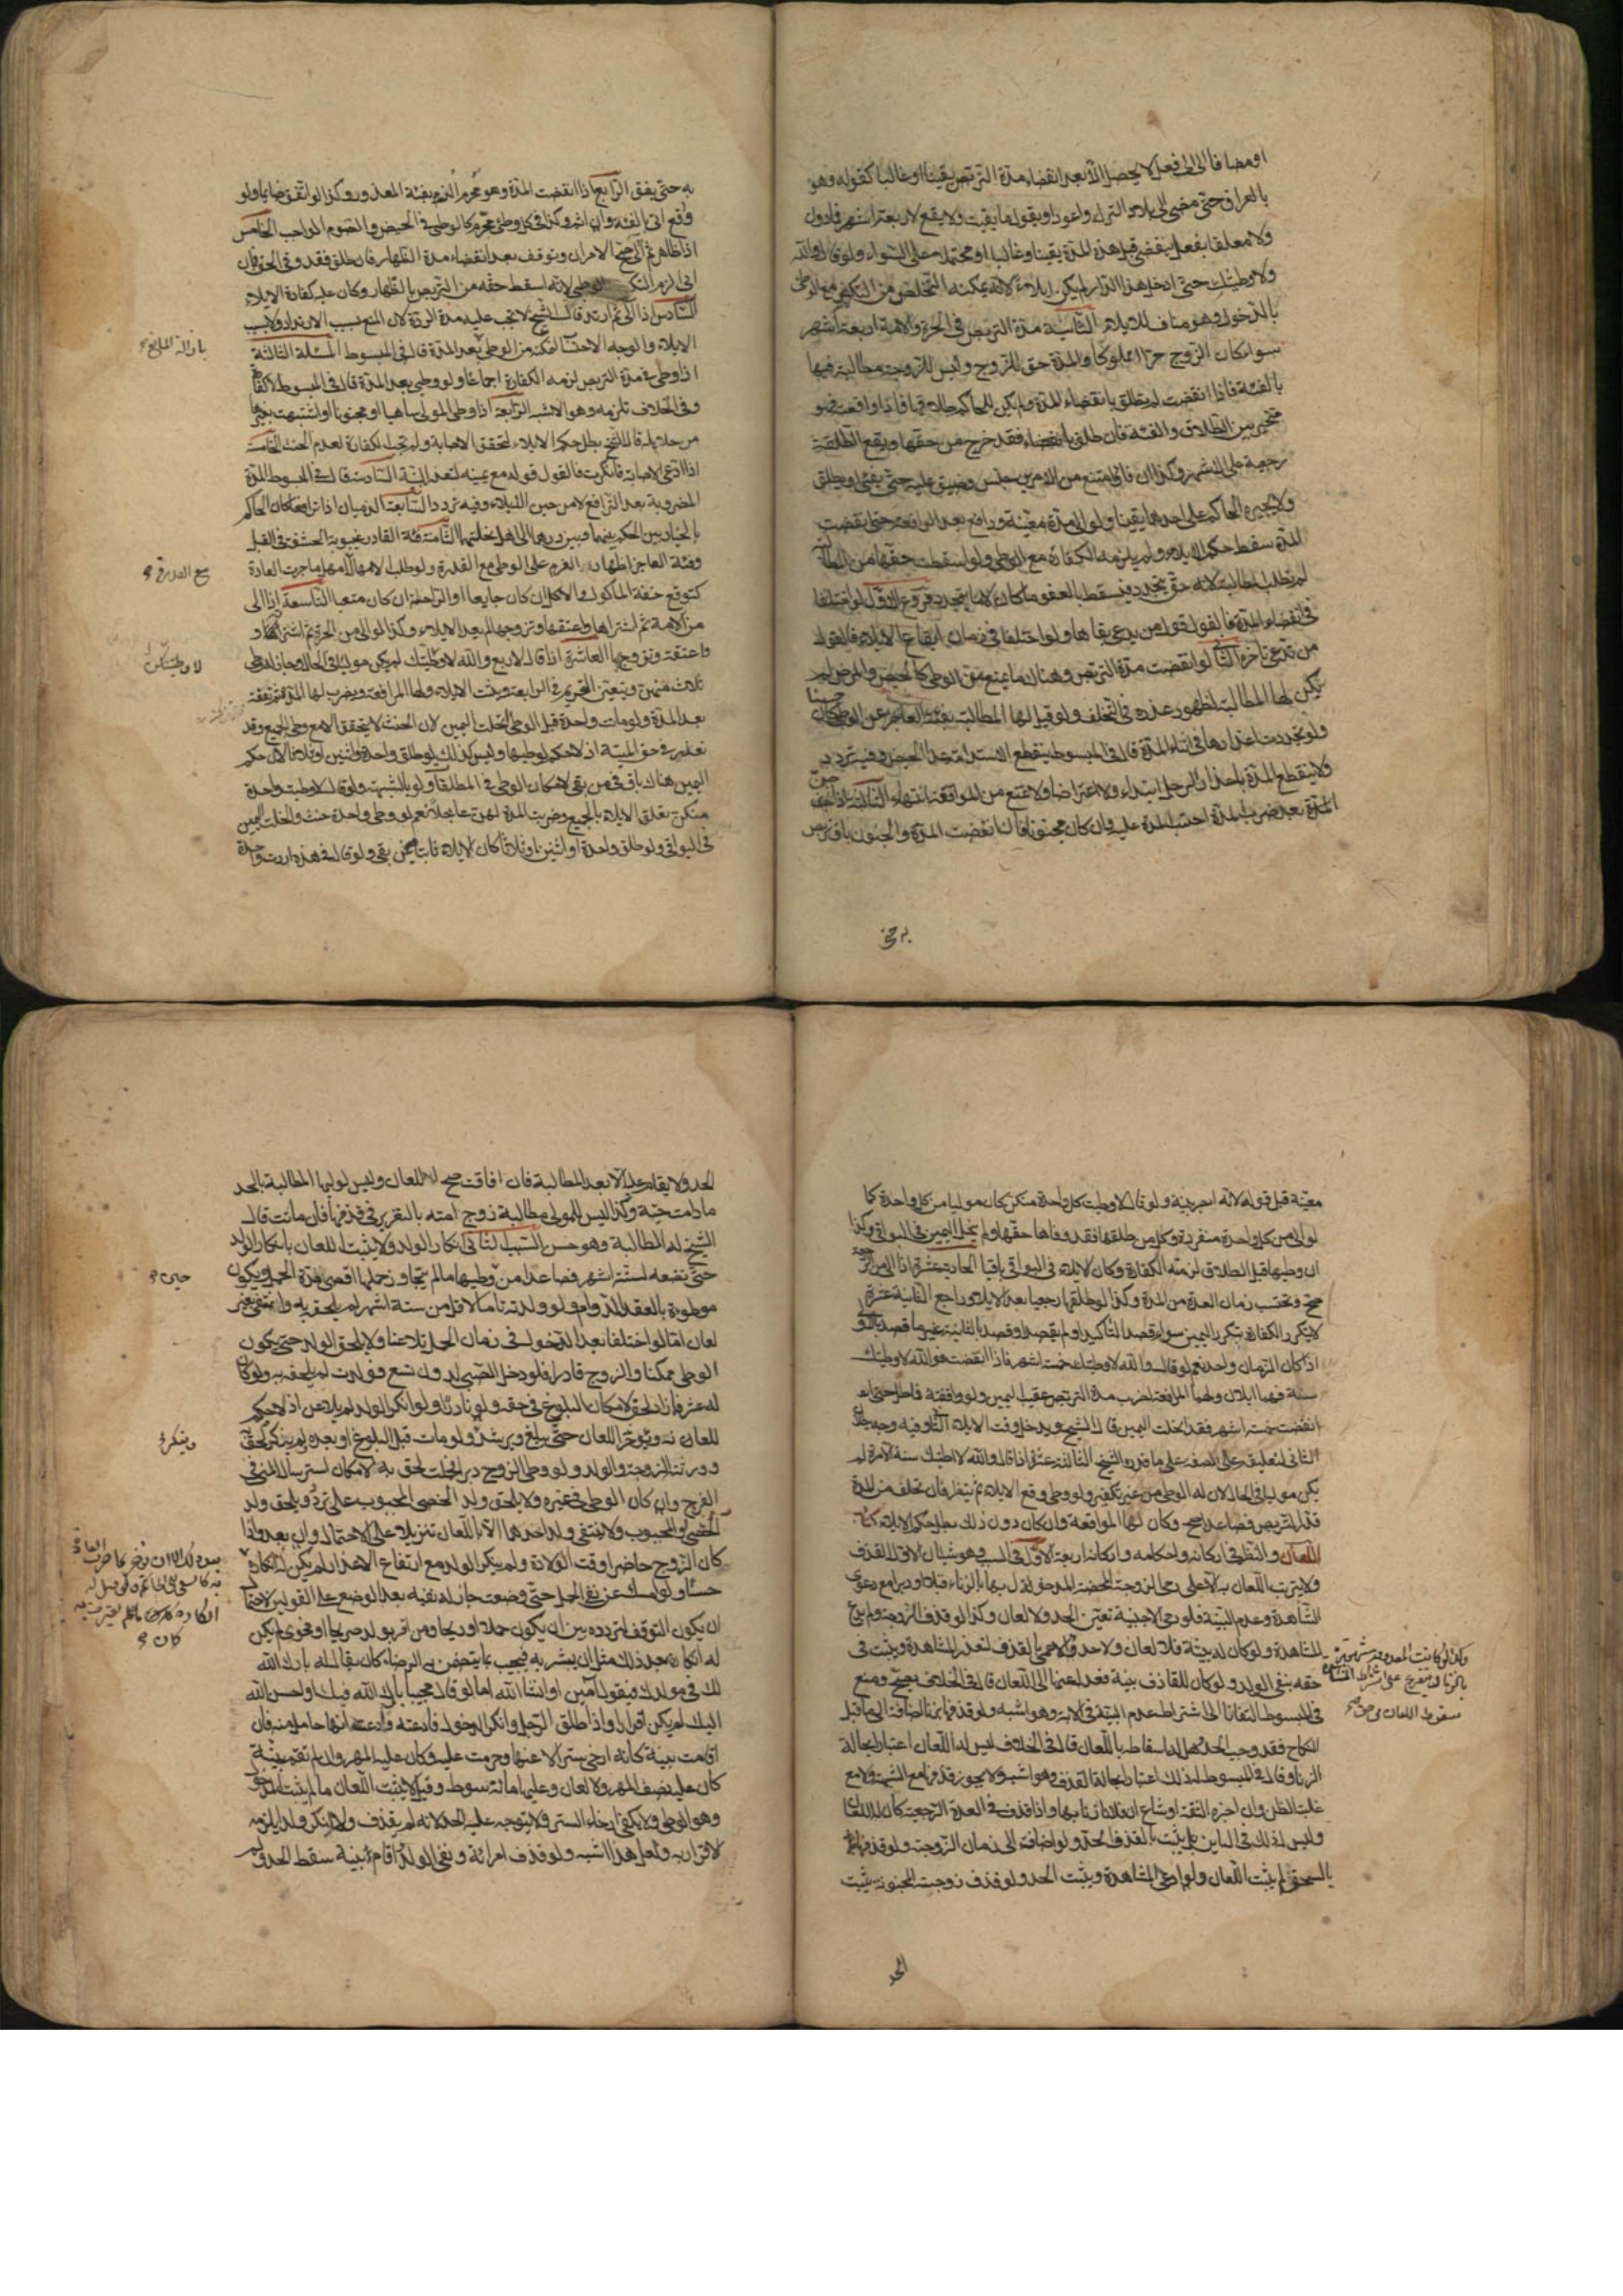 او مضافا الى فعل لا يحصل الا بعد انقضاء مدة التربص يقينا او غالبا كقوله وهو
بالعراق حتى مضى الى بلاد الترك واعود او يقول ما بقيت ولا يقع لاربعة اشهر فما دون
ولا معلقا بفعل ينقضي قبل هذه المدة يقينا او غالبا او محتملا على السواء ولو قال والله
ولا وطيتك حتى ادخل هذا الدار لم يكن ايلاء لانه يمكنه التخلص من التكفير مع الوطي
بالدخول وهو مناف للايلاء الثانية مدة التربص في الحرة والامة اربعة اشهر
سواء كان الزوج حرا او مملوكا والمدة حق للزوج وليس للزوجة مطالبته فيها
بالفئة فاذا انقضت لم تطلق بانقضاء المدة ولم يكن للحاكم طلاقها فاذا واقعته فهو
مخير بين الطلاق والفئة فان طلق بانقضاء فقد خرج من حقها ويقع الطلقة
رجعية على الاشهر وكذا ان فاء وان امتنع من الامرين حبس وضيق عليه حتى يفئ او يطلق
ولا يجبره الحاكم على احدهما يقينا ولو الى مدة معينة ودافع بعد المرافعة حتى انقضت
المدة سقط حكم الايلاء ولم يلزمه الكفارة مع الوطي ولو اسقطت حقها من المطالبة
لم تطلب المطالبة لانه حق يتجدد فيسقط بالعفو ما كان لا ما يتجدد فروع الاول لو اختلفا
في انقضاء المدة فالقول قول من يدعي بقاها ولو اختلفا في زمان ايقاع الايلاء فالقول
من تدعي تاخره الثاني لو انقضت مدة التربص وهناك ما يمنع من الوطي كالحيض والمرض لم
يكن لها المطالبة لظهور عذره في التخلف ولو قيل لها المطالبة بفئة العاجز عن الوطي كان حسنا
ولو تجددت اعذارها في اثناء المدة قال في المبسوط ينقطع الاستدامة عدا الحيض وفيه تردد
ولا ينقطع المدة باعذار الرجل ابتداء ولا اعتراضا ولا يمنع من المواقعة انتهاء الثالث اذا جن
المدة بعد ضرب المدة احتسب المدة عليه وان كان مجنونا فان انقضت المدة والجنون باق تربص
به حتى
به حتى يفق الرابع اذا انقضت المدة وهو محرم الزم بفئة المعذور وكذا لو اتفق صايما ولو
واقع اتى بالفئة وان اثم وكذا في كل وطئ محرم كالوطي في الحيض والصوم الواجب الخامس
اذا ظاهر ثم آلى صح الامران وتوقف بعد انقضاء مدة الظهار فان طلق فقد وفى الحق فان
ابى الزم التكفير والوطي لانه اسقط حقه من التربص بالظهار وكان عليه كفارة الايلاء
السادس اذا آلى ثم ارتد قال الشيخ لا يحتسب عليه مدة الردة لان المنع بسبب الارتداد لا بسبب
الايلاء والوجه الاحتساب لتمكنه من الوطي بعد المدة قال في المبسوط المسئلة الثالثة
اذا وطى في مدة التربص لزمه الكفارة اجماعا ولو وطي بعد المدة قال في المبسوط لا كفارة
وفى الخلاف تلزمه وهو الاشبه الرابعة اذا وطى المولى ساهيا او مجنونا او اشتبهت بغيرها
من حلايله قال الشيخ بطل حكم الايلاء لتحقق الاصابة ولم تجب الكفارة لعدم الحنث الخامسة
اذا ادعى الاصابة فانكرت فالقول قوله مع يمينه لتعذر البينة السادسة قال في المبسوط المدة
المضروبة بعد الترافع لا من حين الايلاء وفيه تردد السابعة الذميان اذا ترافعا كان الحاكم
بالخيار بين الحكم بينهما وبين ردهما الى اهل نحلتهما الثامنة فئة القادر غيبوبة الحشفة في القبل
وفئة العاجز اظهار العزم على الوطي مع القدرة ولو طلب الامهال امهل ما جرت العادة
كتوقع خفة الماكول والاكل ان كان جايعا او الراحة ان كان متعبا التاسعة اذا آلى
من الامة ثم اشتراها واعتقها وتزوجها لم يعد الايلاء وكذا لو آلى من الحرة ثم اشتراها و
واعتقه وتزوج بها العاشرة اذا قال لاربع والله لا وطيتك لم يكن موليا في الحال وجاز له وطى
ثلاث منهن ويتعين التحريم في الرابعة ويثبت الايلاء ولها المرافعة ويضرب لها المدة ثم تقفه
بعد المدة ولو ماتت واحدة قبل الوطي انحلت اليمين لان الحنث لا يتحقق الا مع وطي الجميع وقد
تعذر في حق الميتة اذ لا حكم لوطيها وليس كذلك لو طلق واحدة او اثنين او ثلاثا لان حكم
اليمين هناك باق في من بقي لامكان الوطي في المطلقات ولو بالشبهة ولو قال لا وطيت واحدة
منكن تعلق الايلاء بالجميع وضربت المدة لهن عاجلا نعم لو وطى واحدة حنث وانحلت اليمين
في البواقي ولو طلق واحدة او اثنين او ثلاثا كان الايلاء ثابتا فيمن بقي ولو قال في هذه اردت واحدة
لا وطيتكن
معينة قبل قوله لانه ابصر بنيته ولو قال لا وطيت كل واحدة منكن كان موليا من كل واحدة كما
لو آلى من كل واحدة منفردة وكل من طلقها فقد وفاها حقها ولم ينحل اليمين في البواقي وكذا
ان وطيها قبل الطلاق لزمته الكفارة وكان الايلاء في البواقي باقيا الحادية عشرة اذا آلى من الرجعية
صح وتحتسب زمان العدة من المدة وكذا لو طلقها رجعيا بعد الايلاء وراجع الثانية عشرة
لا يتكرر الكفارة بتكرر اليمين سواء قصد التاكيد او لم يقصد او قصد بالثانية غير ما قصد بالاولى
اذا كان الزمان واحد نعم لو قال والله لا وطيتك خمسة اشهر فاذا انقضت فوالله لا وطيتك
سنة فهما ايلان ولها المرافعة لضرب مدة التربص عقيب اليمين ولو وافقته فماطل حتى
انقضت خمسة اشهر فقد انحلت اليمين قال الشيخ ويدخل وقت الايلاء الثاني وفيه وجه ببطلان
الثاني لتعليقه على الصفة على ما قرره الشيخ الثالثة عشر اذا قال والله لا وطيتك سنة الا مرة لم
يكن موليا في الحال لان له الوطي من غير تكفير ولو وطى وقع الايلاء ثم ينظر فان تخلف من المدة
قدر التربص فصاعدا صح وكان لها المواقعة وان كان دون ذلك بطل حكم الايلاء كتاب
اللعان والنظر في اركانه واحكامه واركانه اربعة الاول في السبب وهو شيئان الاول القذف
ولا يترتب اللعان به الا على رمي الزوجة المحصنة المدخول بها بالزناء قبلا او دبرا مع دعوى
المشاهدة وعدم البينة فلو رمى الاجنبية تعين الحد ولا لعان وكذا لو قذف الزوجة ولم يدع
المشاهدة ولو كان له بينة فلا لعان ولا حد والاعمى بالقذف لتعذر المشاهدة ويثبت في
حقه بنفي الولد ولو كان للقاذف بينة فعدل عنها الى اللعان قال في الخلاف يصح ومنع
في المبسوط التفاتا الى اشتراط عدم البينة في الاية وهو اشبه ولو قذفها بزنا اضافة الى ما قبل
النكاح فقد وجب الحد وهل له اسقاطه باللعان قال في الخلاف ليس له اللعان اعتبارا بحالة
الزنا وقال في المبسوط له ذلك اعتبارا بحالة القذف وهو اشبه ولا يجوز قذفها مع الشبهة ولا مع
غلبة الظن وان اخبره الثقة او شاع ان فلانا زنا بها واذا قذف في العدة الرجعية كان له اللعان
وليس له ذلك في الباين بل يثبت بالقذف الحد ولو اضافه الى زمان الزوجية ولو قذفها
بالسحق لم يثبت اللعان ولو ادعى المشاهدة ويثبت الحد ولو قذف زوجته المجنونة يثبت
الحد
الحد ولا يقام عليه الا بعد المطالبة فان افاقت صح اللعان وليس لوليها المطالبة بالحد
ما دامت حية وكذا ليس للمولى مطالبة زوج امته بالتعزير في قذفها فان ماتت قال
الشيخ له المطالبة وهو حسن السبب الثاني انكار الولد ولا يثبت اللعان بانكار الولد
حتى تضعه لستة اشهر فصاعدا من وطيها ما لم يتجاوز حملها اقصى مدة الحمل ويكون
موطوءة بالعقد الدوام ولو ولدته تاما لاقل من ستة اشهر لم يلحق به وانتفى بغير
لعان اما لو اختلفا بعد الدخول في زمان الحمل تلاعنا ولا يلحق الولد حتى يكون
الوطي ممكنا والزوج قادرا فلو دخل الصبي لدون تسع فولدت لم يلحق به ولو كان
له عشر فما زاد لحق لامكان البلوغ في حقه ولو نادرا ولو انكر الولد لم يلاعن اذ لا حكم
للعانه ويؤخر اللعان حتى يبلغ ويرشد ولو مات قبل البلوغ او بعده ولم ينكره لحق
وورثته الزوجة والولد ولو وطي الزوج دبرا فحملت لحق به لامكان استرسال المني في
الفرج وان كان الوطي في غيره ولا يلحق ولد الخصي المجبوب على تردد ويلحق ولد
الخصي او المجبوب ولا ينتفي ولد احدهما الا باللعان تنزيلا على الاحتمال وان بعد واذا
كان الزوج حاضرا وقت الولادة ولم ينكر الولد مع ارتفاع الاعذار لم يكن له انكاره
حسنا ولو امسك عن نفي الحمل حتى وضعت جاز له نفيه بعد الوضع على القولين لاحتمال
ان يكون التوقف لتردده بين ان يكون حملا او ريحا ومن اقر بولد صريحا او فحوى لم يكن
له انكاره بعد ذلك مثل ان يبشر به فيجيب بما يتضمن الرضاء كان يقال له بارك الله
لك في مولدك فيقول آمين او انشاء الله اما لو قال مجيبا بارك الله فيك او احسن الله
اليك لم يكن اقرارا واذا طلق الرجل وانكر الدخول فادعته وادعت انها حامل منه فان
اقامت بينة كانه ارخى سترا لاعنها وحرمت عليه وكان عليه المهر وان لم تقم بينة
كان عليه نصف المهر ولا لعان وعليها مائة سوط وقيل لا يثبت اللعان ما لم يثبت الدخول
وهو الوطي ولا يكفي ارخاء الستر ولا يتوجه عليه الحد لانه لم يقذف ولا انكر ولدا يلزمه
لاقرار به ولعل هذا اشبه ولو قذف امراته ونفى الولد واقام بينة سقط الحد ولم
حين